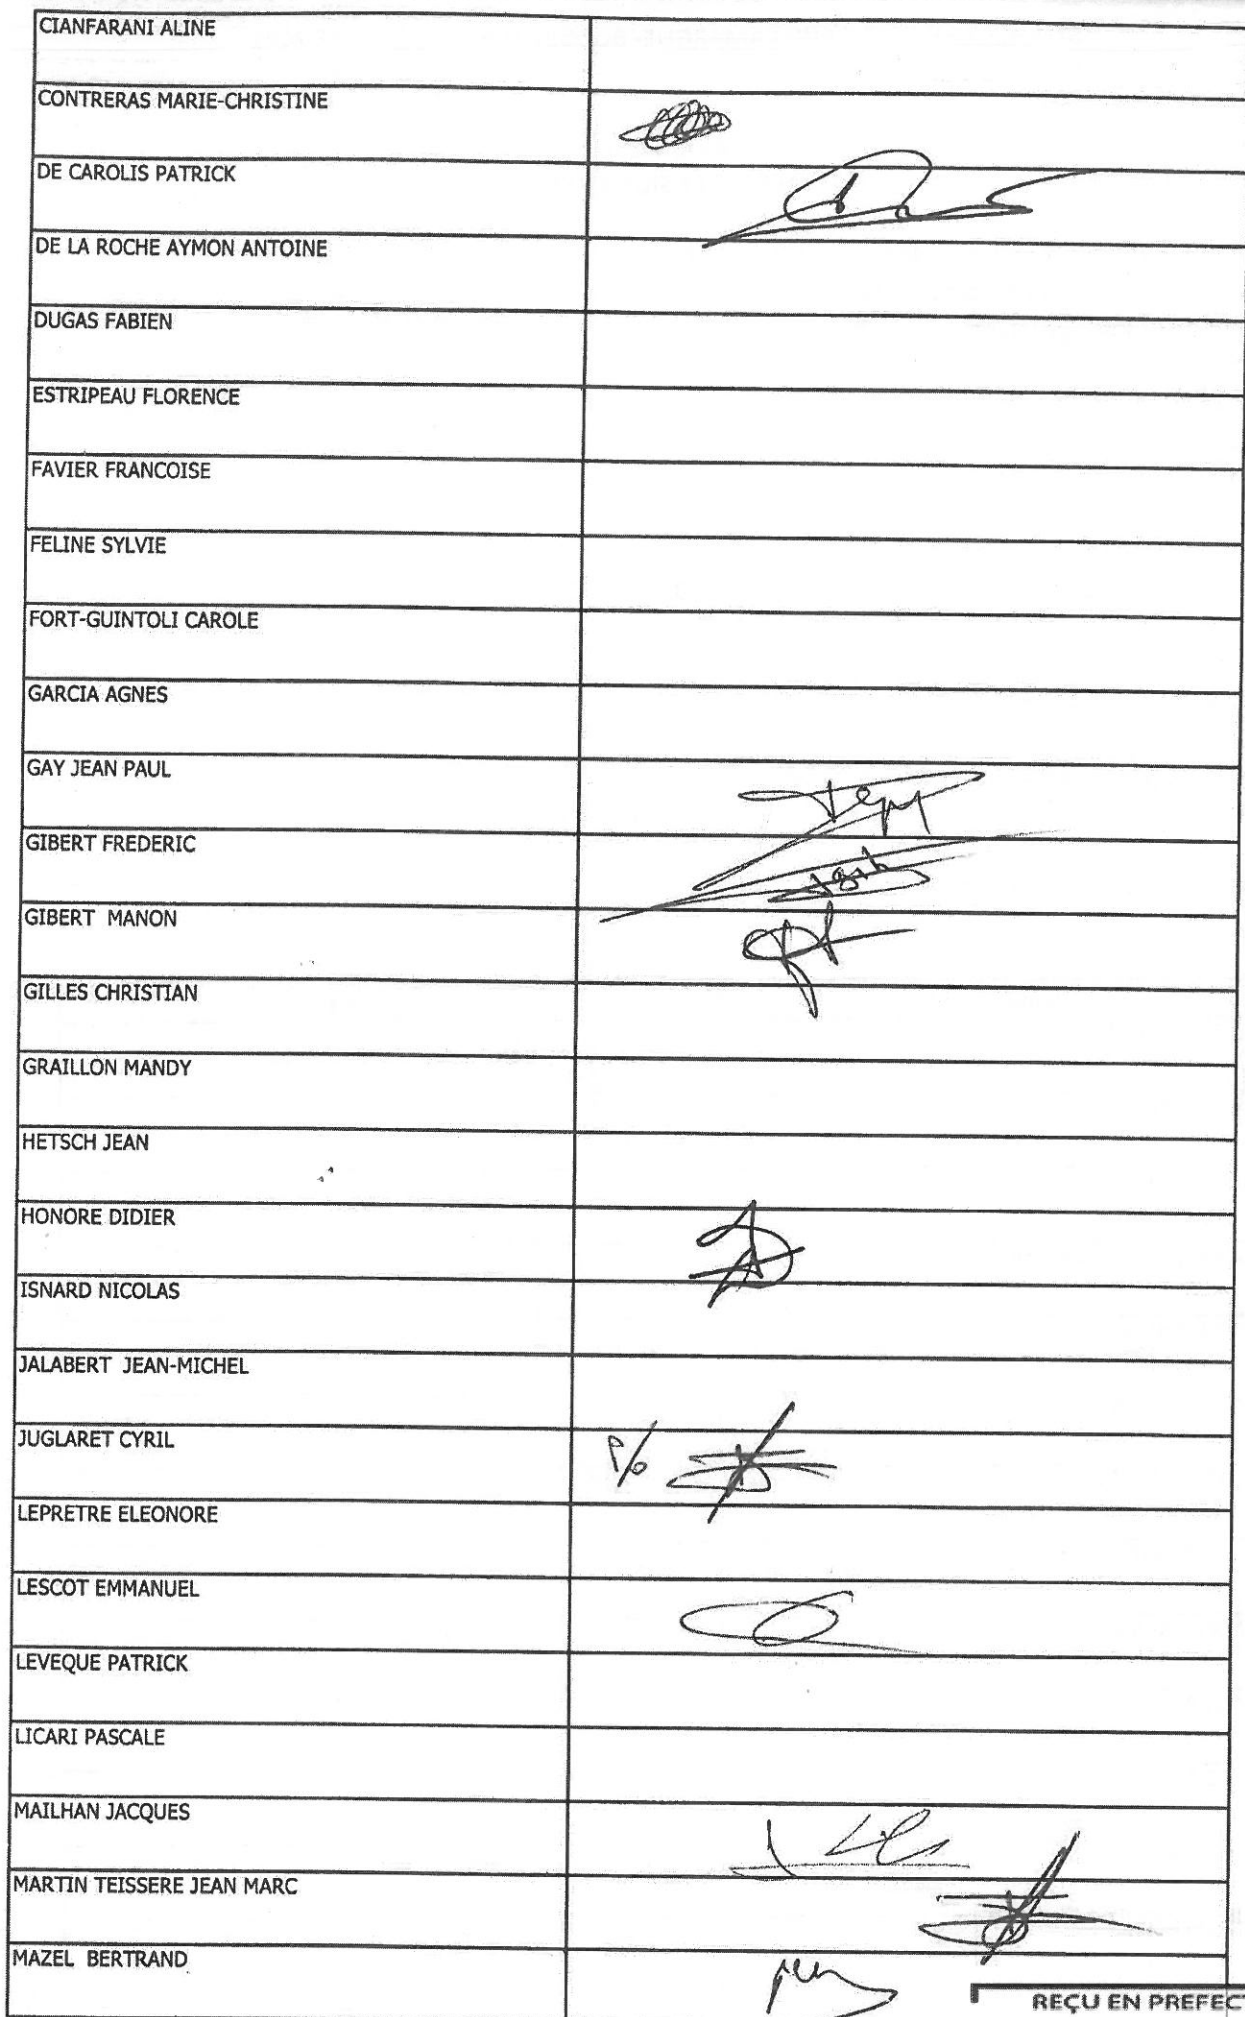 CIANFARANI ALINE
CONTRERAS MARIE-CHRISTINE
DE CAROLIS PATRICK
DE LA ROCHE AYMON ANTOINE
DUGAS FABIEN
ESTRIPEAU FLORENCE
FAVIER FRANCOISE
FELINE SYLVIE
FORT-GUINTOLI CAROLE
GARCIA AGNES
GAY JEAN PAUL
GIBERT FREDERIC
GIBERT MANON
GILLES CHRISTIAN
GRAILLON MANDY
HETSCH JEAN
HONORE DIDIER
ISNARD NICOLAS
JALABERT JEAN-MICHEL
JUGLARET CYRIL P/o
LEPRETRE ELEONORE
LESCOT EMMANUEL
LEVEQUE PATRICK
LICARI PASCALE
MAILHAN JACQUES
MARTIN TEISSERE JEAN MARC
MAZEL BERTRAND
REÇU EN PREFECT